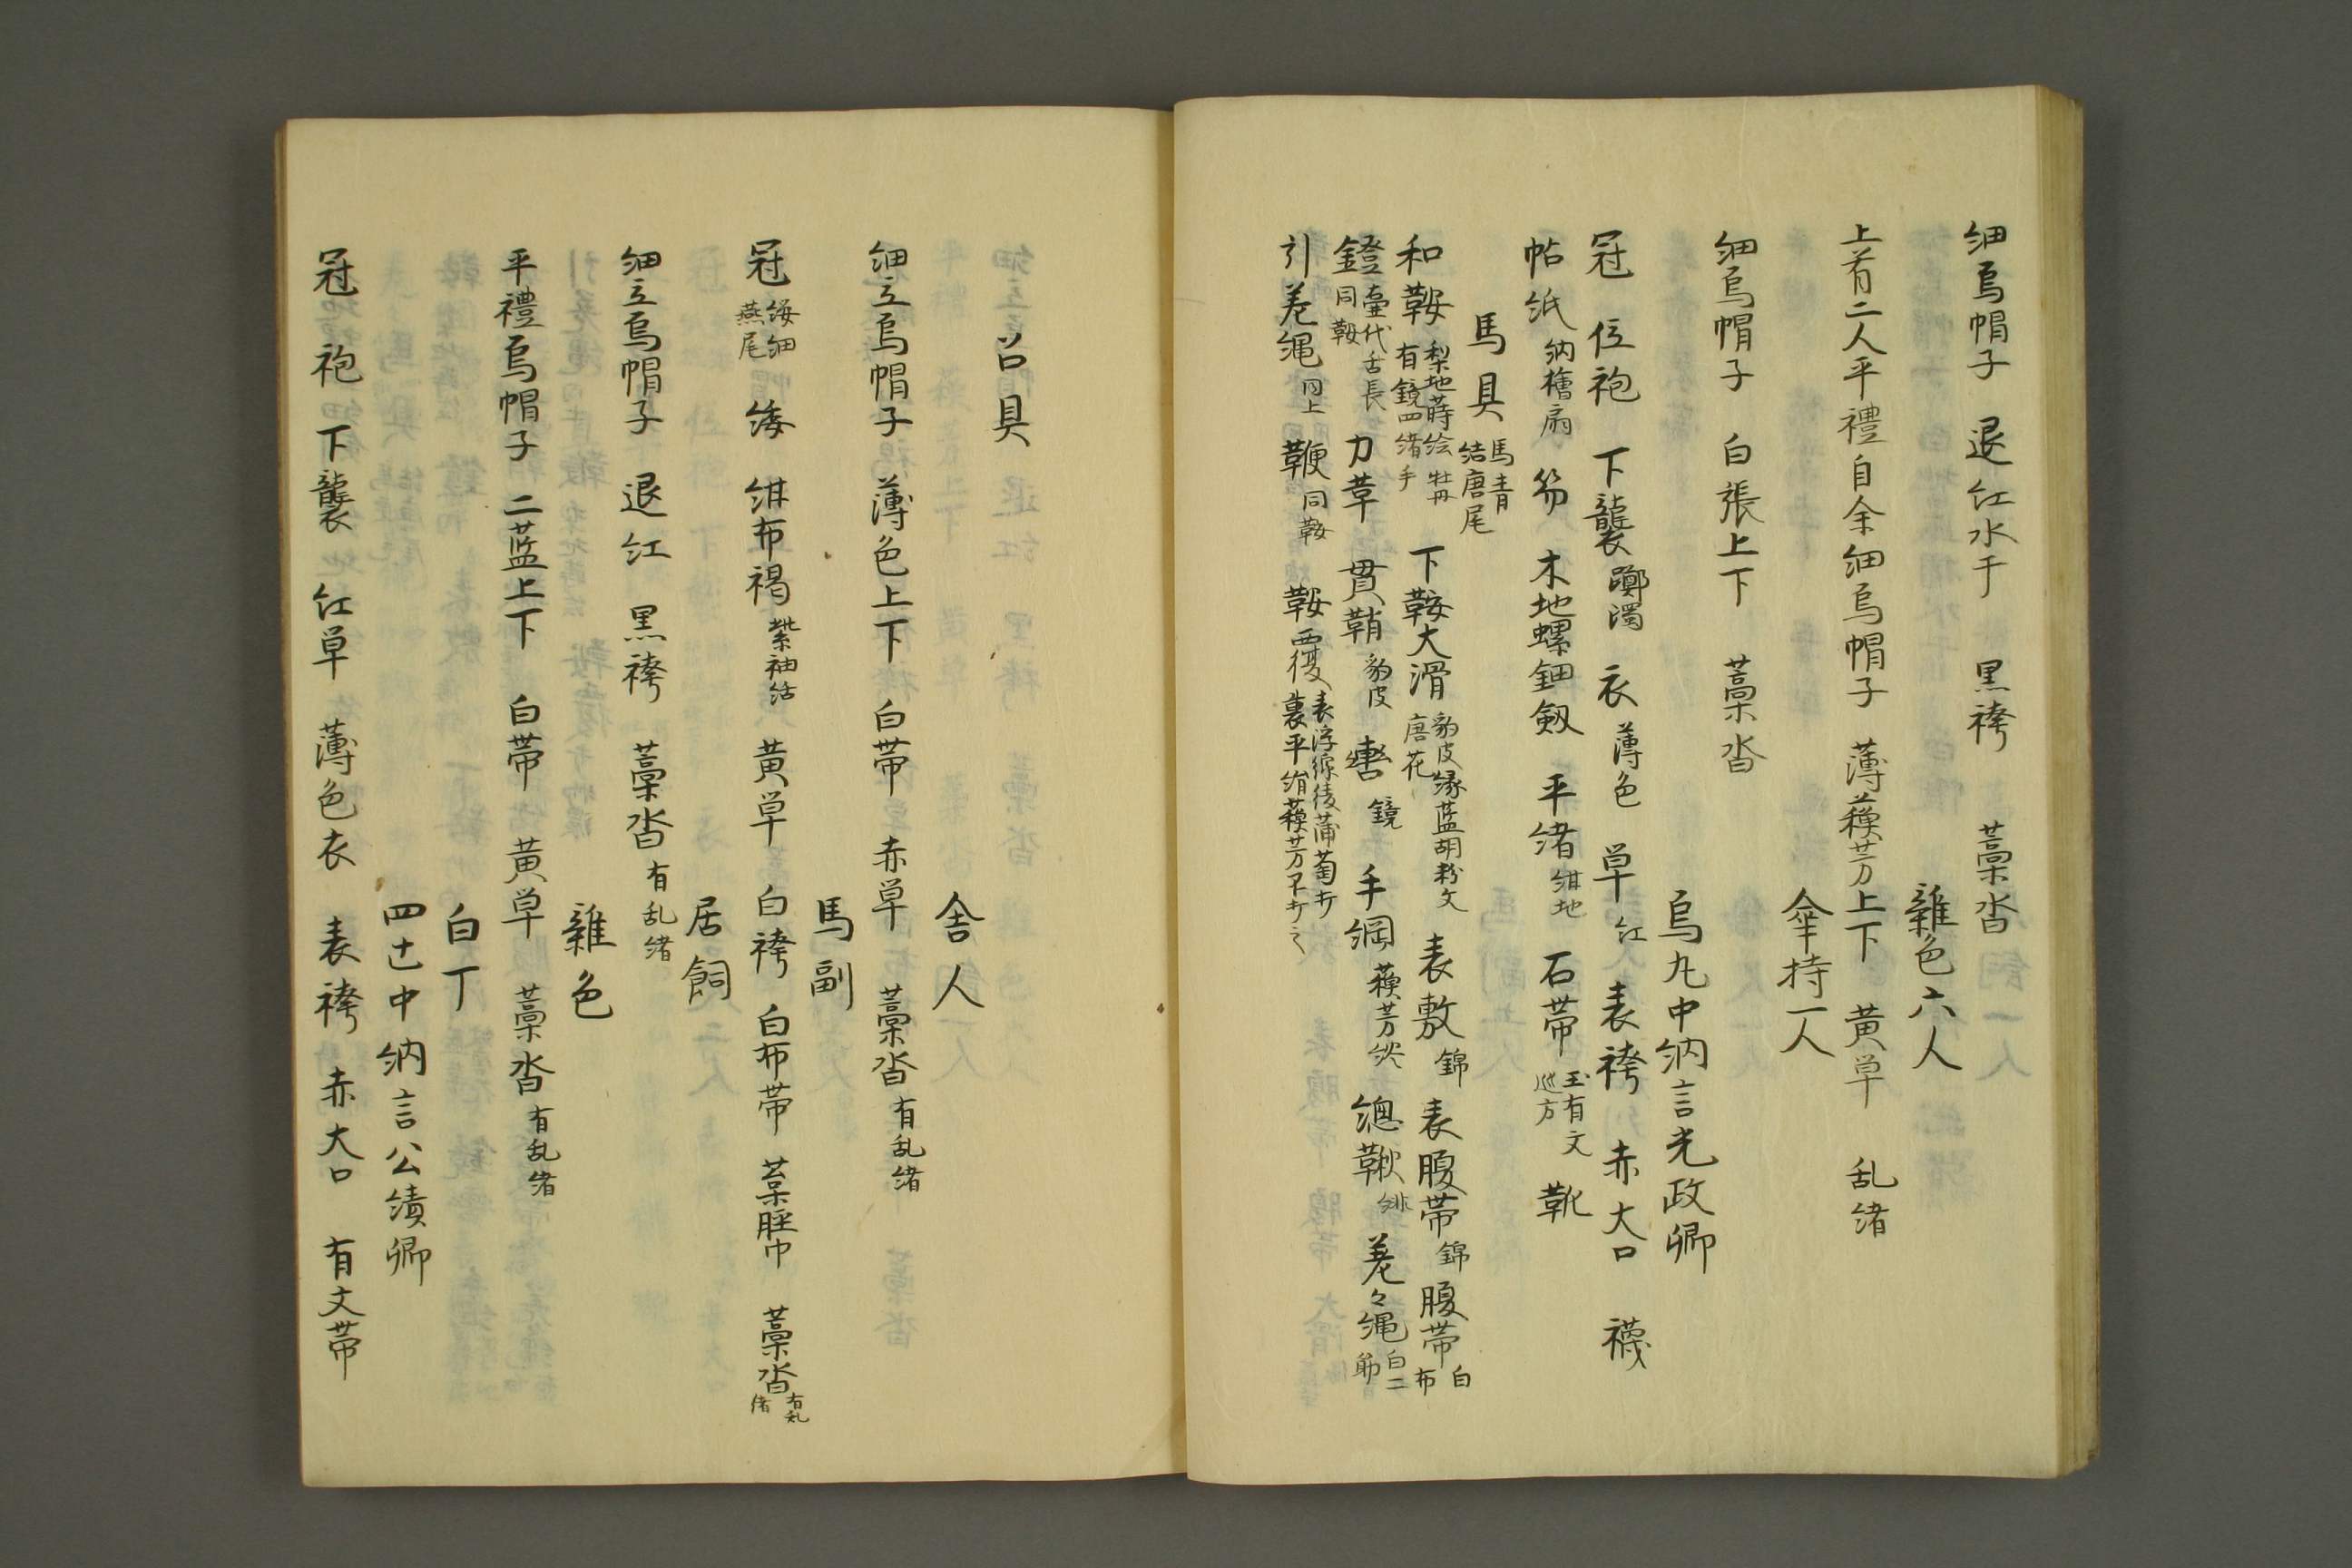 細烏帽子 退紅水干 黒袴 藁沓
雜色六人
上首二人平禮自余細烏帽子 薄蘓芳上下 黄単 乱緒
傘持一人
細烏帽子 白張上下 藁沓
烏丸中納言光政卿
冠 位袍 下襲躑濁 衣薄色 単紅 表袴 赤大口 襪
帖紙納檜扇 笏 木地螺鈿劔 平緒紺地 石帯玉有文巡方 靴
馬具馬青結唐尾
和鞍梨地蒔絵牡丹有鏡四緒手 下鞍大滑豹皮縁藍胡粉文唐花 表敷錦 表腹帯錦 腹帯白布
鐙臺代舌長同鞍 力革 貫鞘豹皮 轡鏡 手綱蘓芳 總鞦緋 差々縄白二筋
引差縄同上 鞭同鞍 鞍覆表浮線綾蒲萄裏平絹蘓芳
召具
舎人
細立烏帽子 薄色上下 白帯 赤単 藁沓有乱緒
馬副
冠緌細燕尾 緌 紺布褐紫袖結 黄単 白袴 白布帯 葉脛巾 藁沓有乱緒
居飼
細立烏帽子 退紅 黒袴 藁沓有乱緒
雜色
平禮烏帽子 二藍上下 白帯 黄単 藁沓有乱緒
白丁
四辻中納言公績卿
冠 袍 下襲 紅単 薄色衣 表袴 赤大口 有文帯